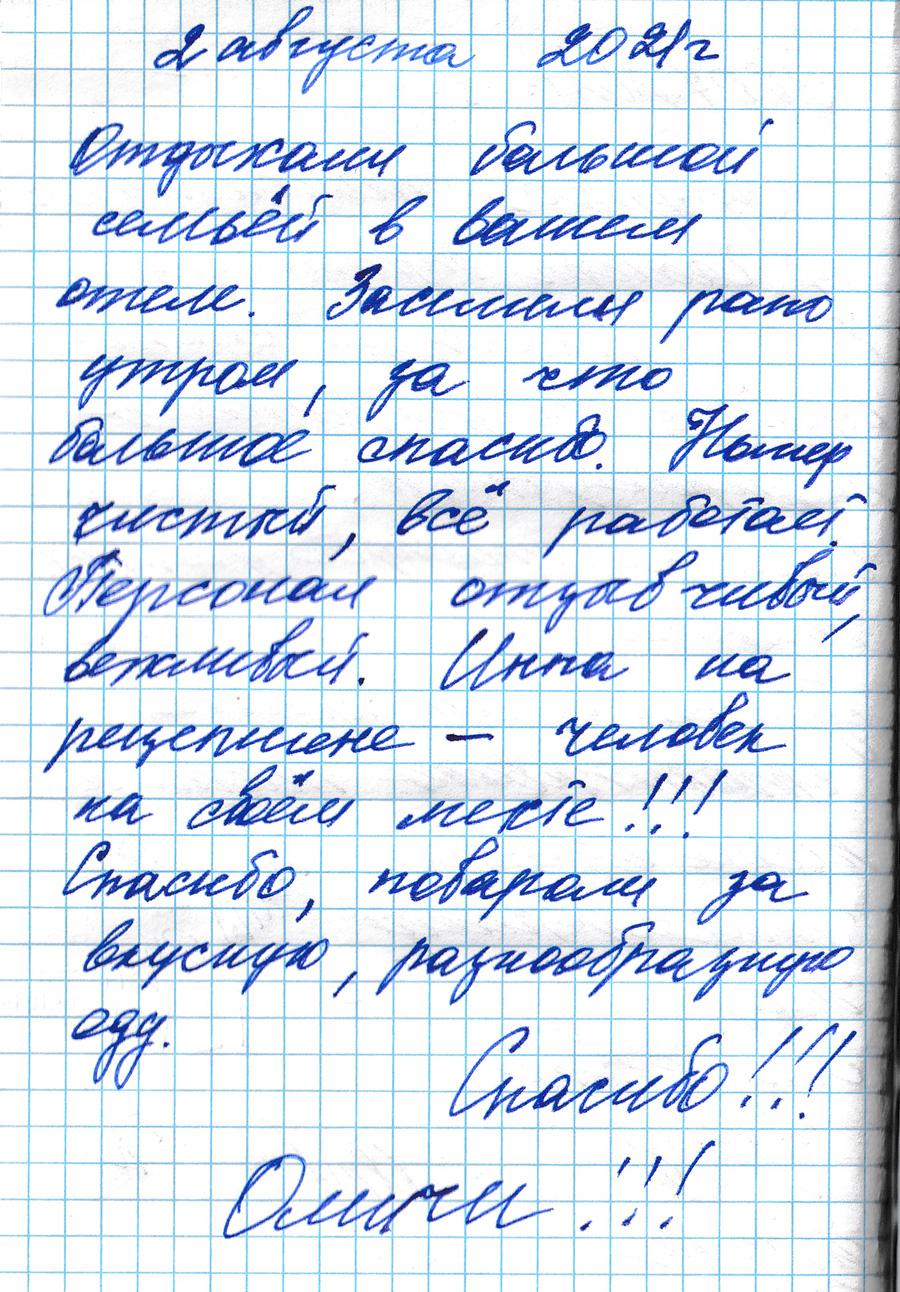 2 августа 2021г
Отдыхали большой
семьёй в вашем
отеле. Заселили рано
утром, за что
большое спасибо. Номер
чистый, всё работает.
Персонал отзывчивый,
вежливый. Инна на
рецепшене – человек
на своём месте!!!
Спасибо, поварам за
вкусную, разнообразную
еду.
Спасибо!!!
Омичи!!!